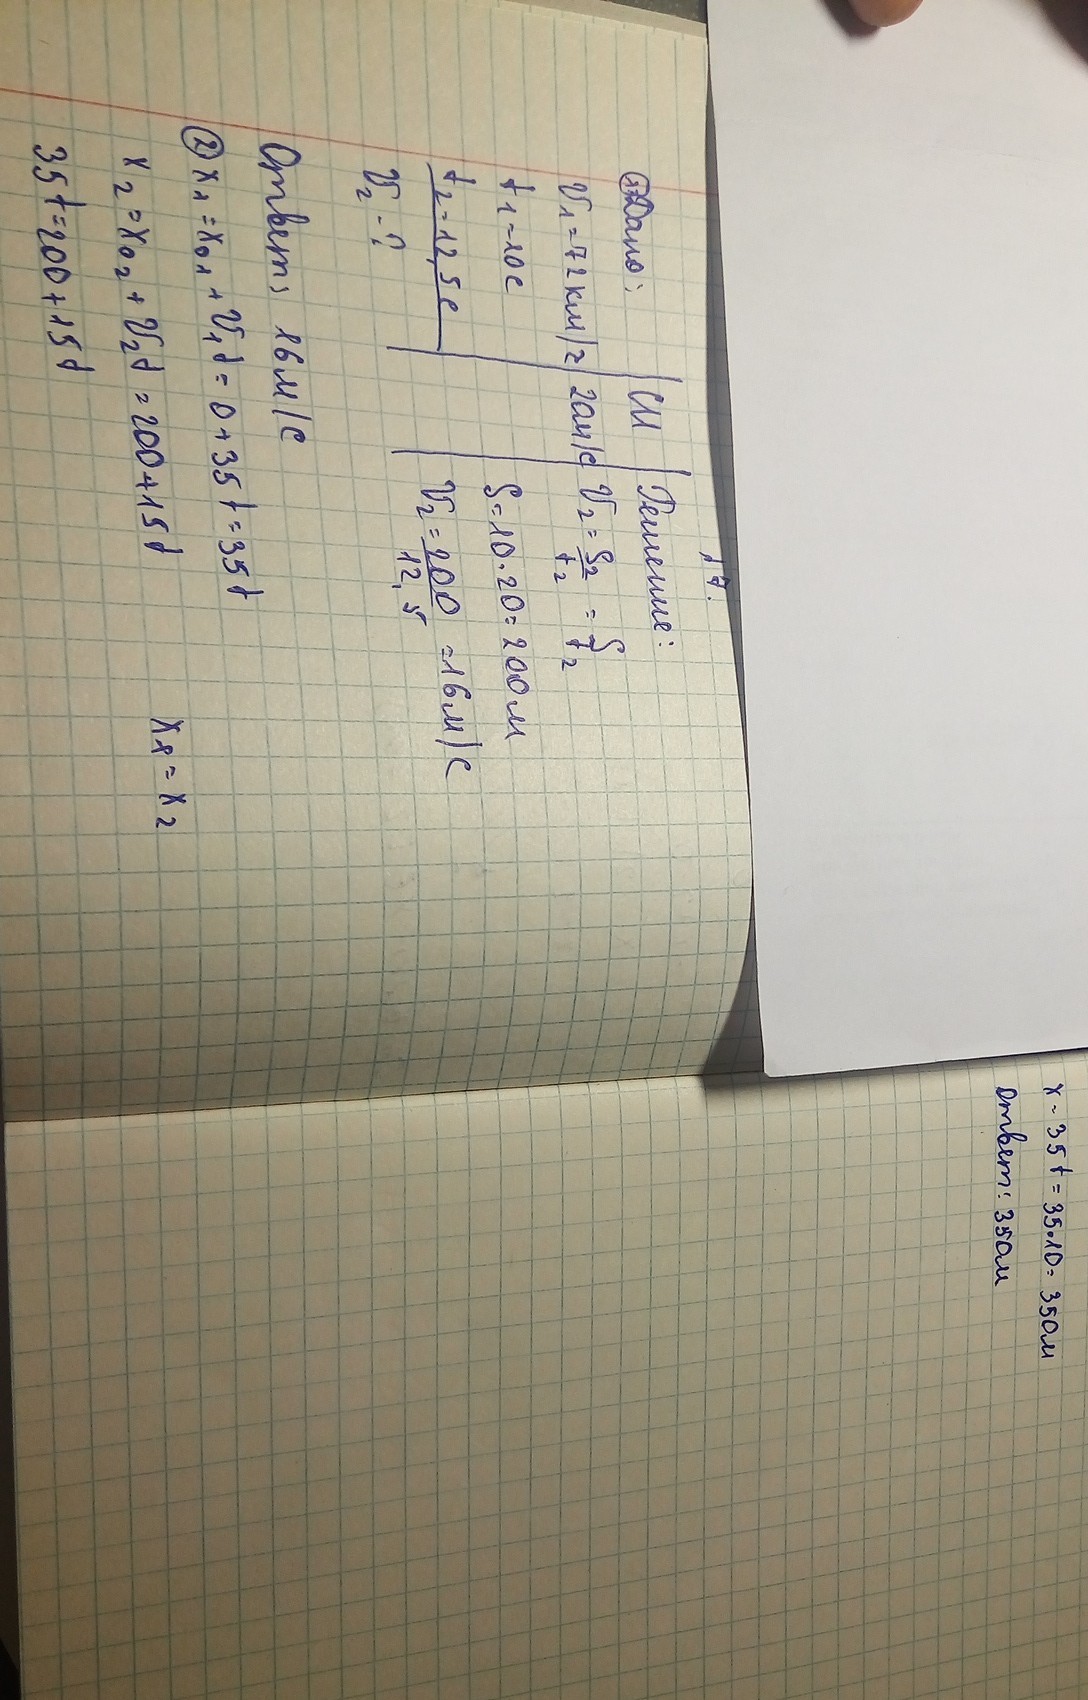 17.
① Дано: СИ Решение:
V₁=72км/г 20м/с V₂=S₂/t₂=S/t₂
t₁=10с S=10·20=200м
t₂=12,5с V₂=200/12,5=16м/с
V₂-?
Ответ: 16м/с
② x₁=x₀₁+V₁t=0+35t=35t
x₂=x₀₂+V₂t=200+15t x₁=x₂
35t=200+15t
x=35t=35·10=350м
Ответ: 350м